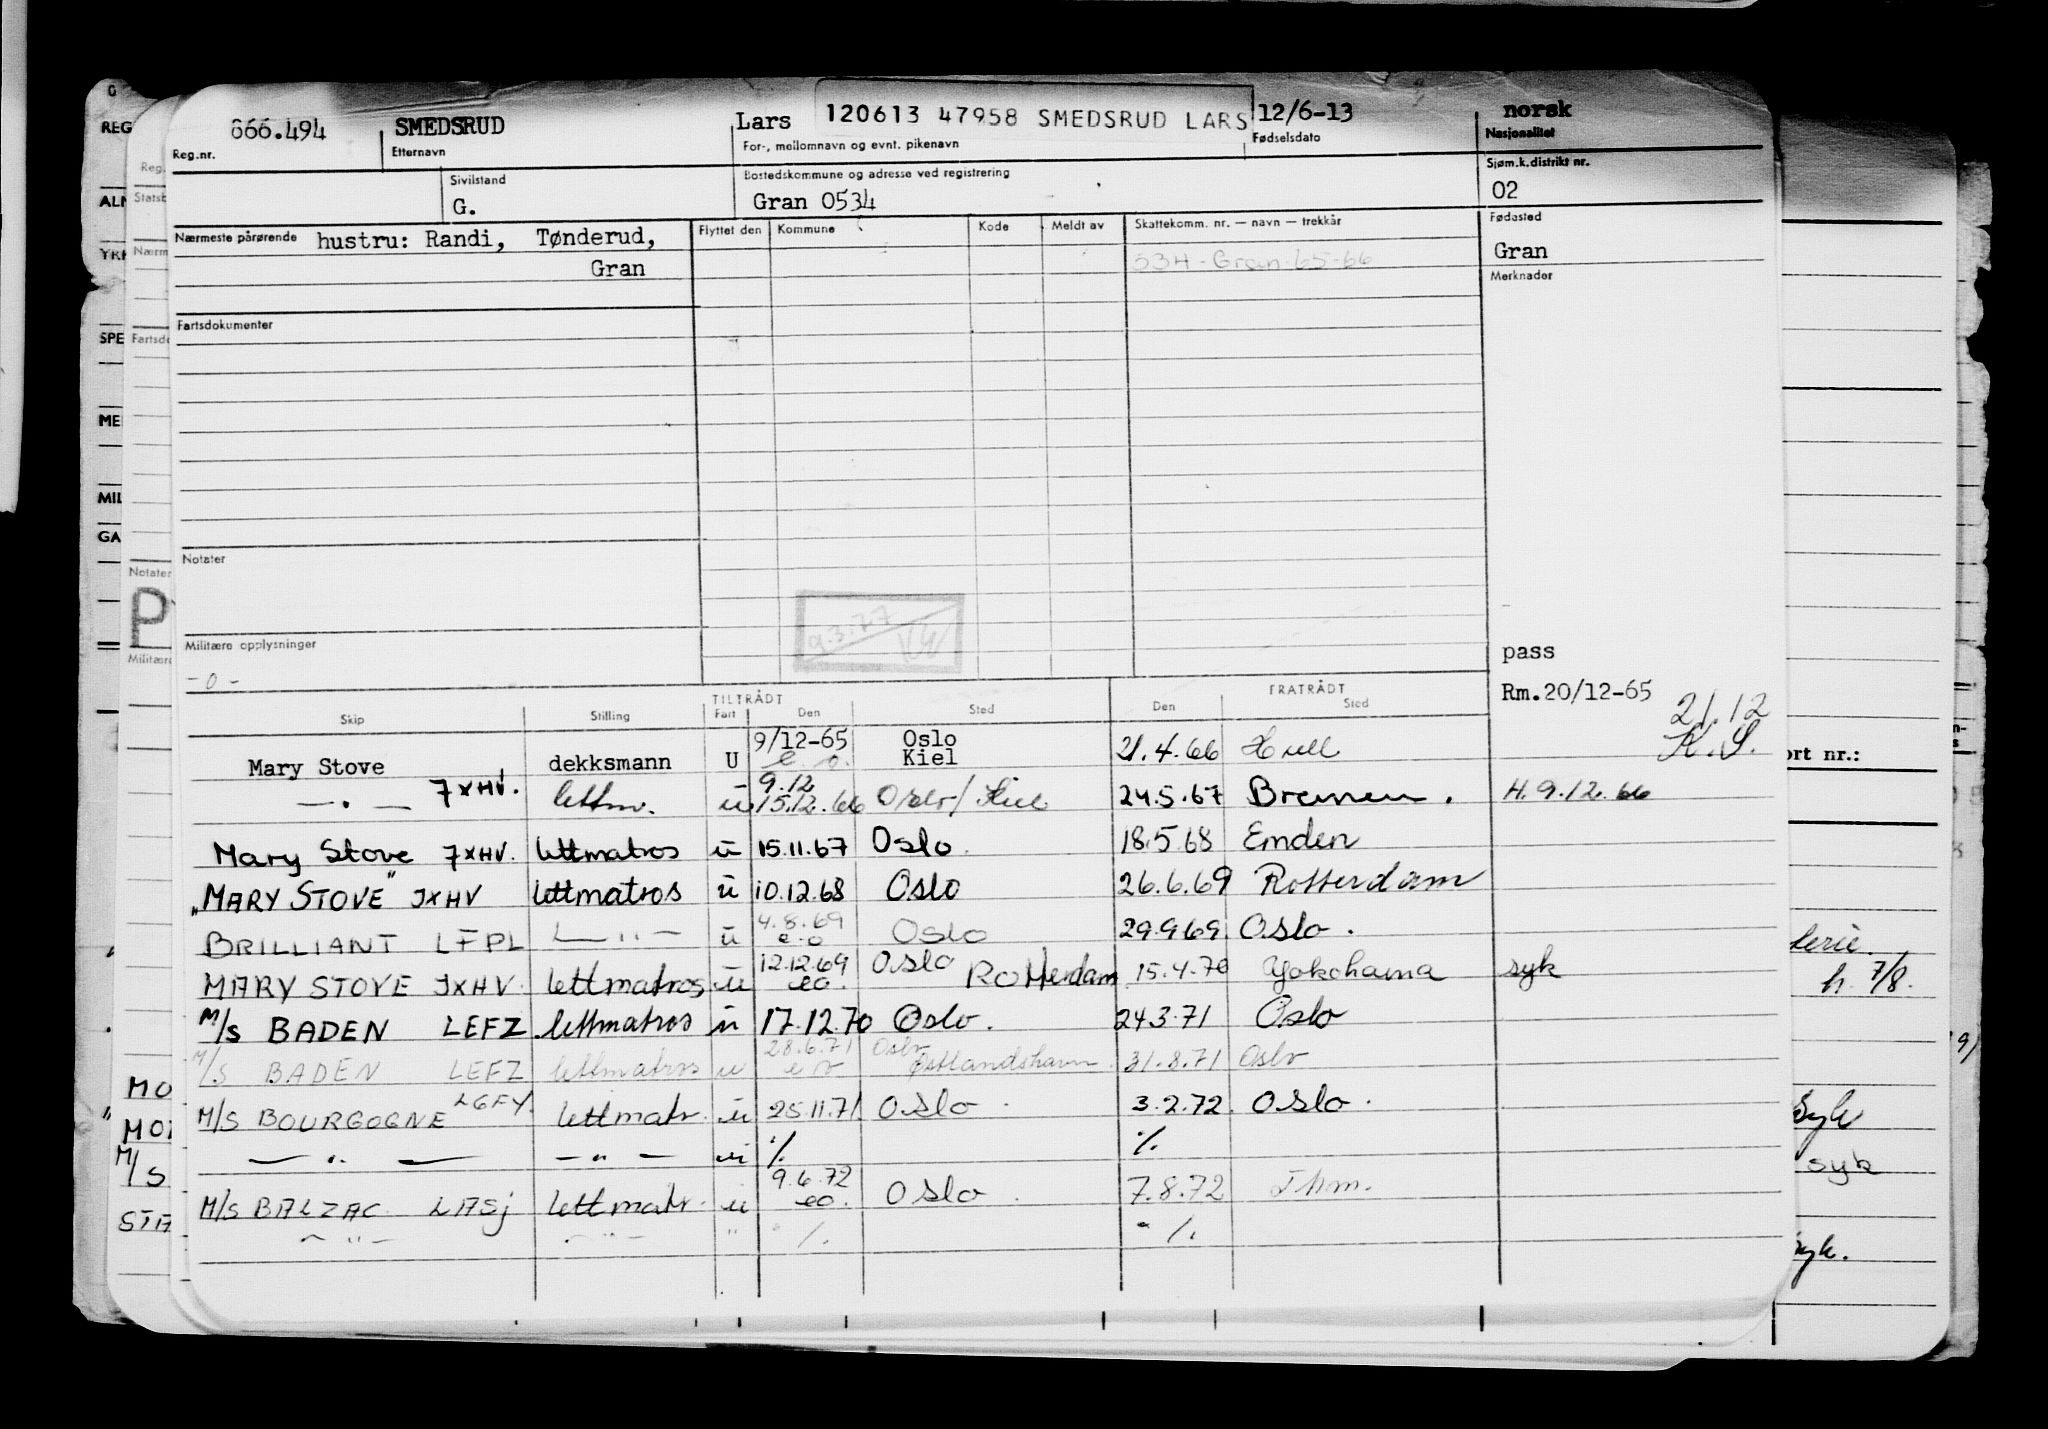 666.494 SMEDSRUD Lars 120613 47958 SMEDSRUD LARS 12/6-13 norsk
Reg.nr. Etternavn For-, mellomnavn og evnt. pikenavn Fødselsdato Nasjonalitet
Sivilstand Bostedskommune og adresse ved registrering Sjøm.k.distrikt nr.
G. Gran 0534 02
Nærmeste pårørende hustru: Randi, Tønderud, Flyttet den Kommune Kode Meldt av Skattekomm. nr. — navn — trekkår Fødested
Gran 534-Gran-65-66 Gran
Merknader
Fartsdokumenter
Notater
9.3.77
Militære opplysninger
-0-
pass
Rm.20/12-65
21.12
K.S.
TILTRÅDT FRATRÅDT
Skip Stilling Fart Den Sted Den Sted
Mary Stove dekksmann U 9/12-65 e.o. Oslo Kiel 21.4.66 Hull
— . — 7XHV. lettm. ü 9.12 15.12.66 Oslo/Kiel 24.5.67 Bremen. H.9.12.66
Mary Stove 7XHV. lettmatros ü 15.11.67 Oslo. 18.5.68 Emden
„MARY STOVE" JXHV lettmatros ü 10.12.68 Oslo 26.6.69 Rotterdam
BRILLIANT LFPL — " — ü 4.8.69 e.o Oslo 29.9.69 Oslo.
MARY STOVE JXHV. lettmatros ü 12.12.69 eo. Oslo Rotterdam 15.4.70 Yokohama syk
M/s BADEN LEFZ lettmatros ü 17.12.70 Oslo. 24.3.71 Oslo
M/S BADEN LEFZ lettmatros u 28.6.71 e o Oslo Østlandshavn. 31.8.71 Oslo
M/S BOURGOGNE LGFY. lettmatr. ü 25.11.71. Oslo. 3.2.72. Oslo.
— " — — " — ü ./. ./.
M/S BALZAC LASj lettmatr. ü 9.6.72 eo. Oslo. 7.8.72
— " — — " — " " ./. " ./.